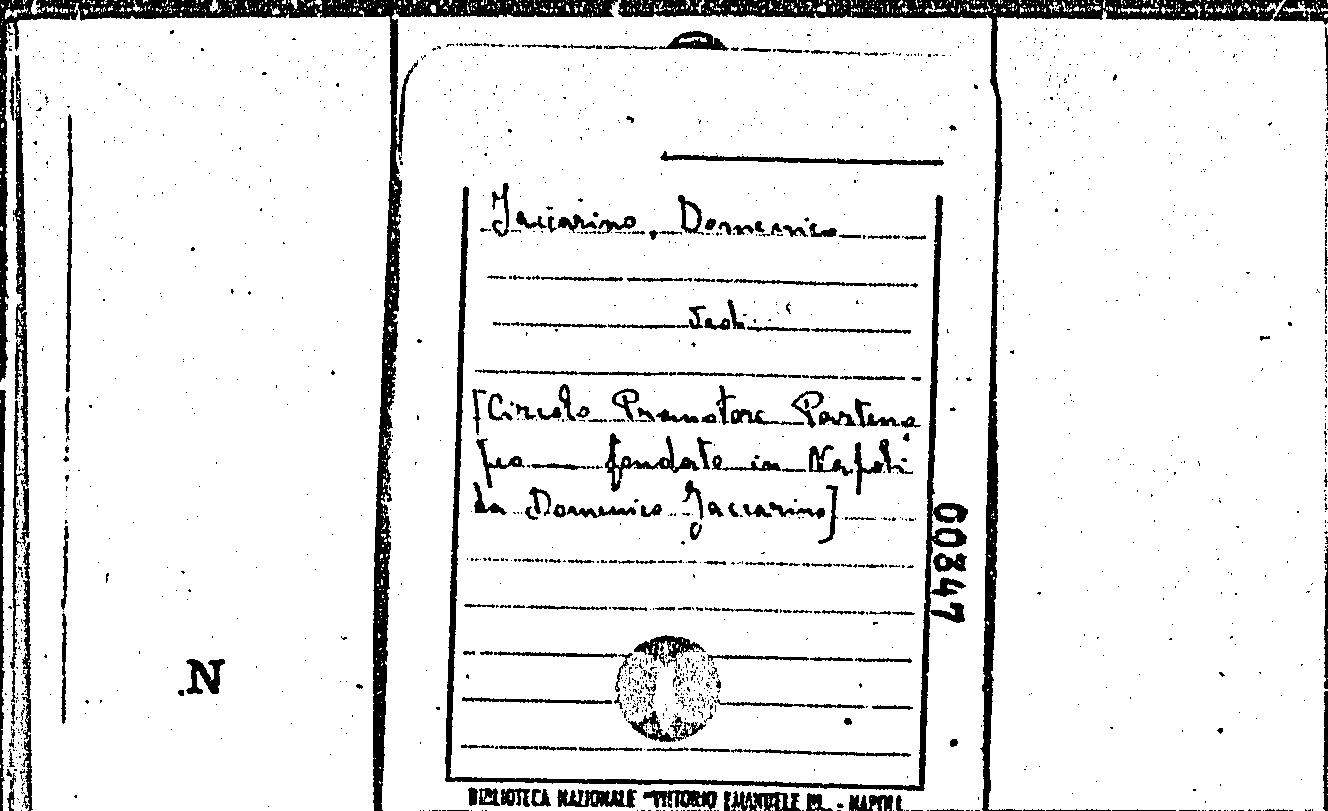 Jaccarino, Domenico
[Circolo Promotore Parteno
peo fondato in Napoli
da Domenico Jaccarino]
00847
.N
BIBLIOTECA NAZIONALE "VITTORIO EMANUELE III" - NAPOLI